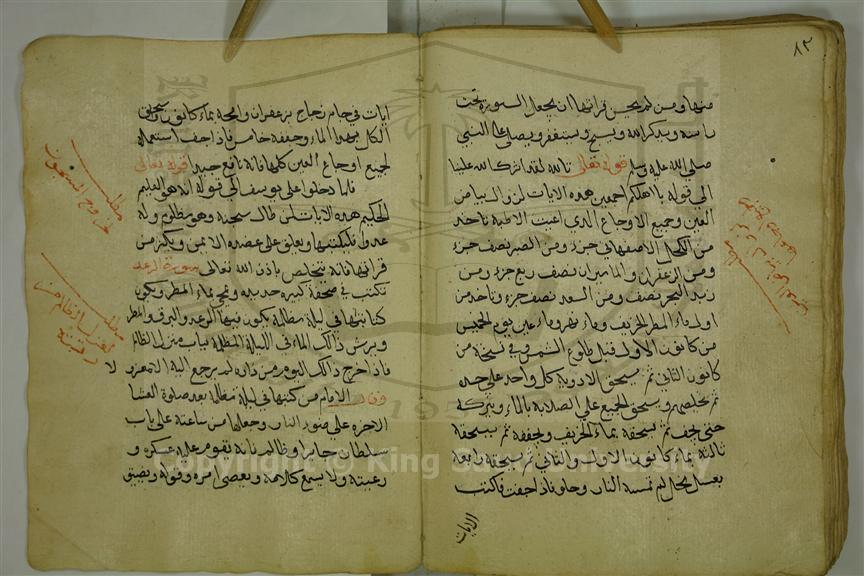 ٨٣
منها ومن لم يحسن قرائتها ان يجعل السورة تحت
راسه ويذكر الله ويسبح ويستغفر ويصلى على النبي
صلى الله عليه وسلم قوله تعالى تالله لقد اثرك الله علينا
الى قوله باهلكم اجمعين هذه الايات لزوال بياض
العين وجميع الاوجاع الذى اعيت الاطبة تاخذ
من الكحل الاصفهاني جزء ومن الصبر نصف جزء
ومن الزعفران والماميران نصف ربع جزء ومن
زبد البحر نصف ومن السعد نصف جزء وتاخذ من
اول ماء المطر الخريف وماء نهر وماء عين يوم الخميس
من كانون الاول قبل طلوع الشمس وفي نسخة من
كانون الثاني ثم يسحق الادوية كل واحد على حده
ثم يسحق الجميع على الصلاية بالماء ويتركه
حتى يجف ثم يسحقه بماء الخريف ويجففه ثم يسحقه
ثالثة بماء كانون الاول والثاني ثم يسحقه رابعة
بعسل نحل لم تمسه النار وخل فاذا جفت فاكتب
الايات
ايات في جام زجاج بزعفران وامحه بماء كانون ويسحق
الكل بهذا الماء وجففه خامس فاذا جف استعمله
لجميع اوجاع العين كلها فانه نافع جيد قوله تعالى
فلما دخلوا على يوسف الى قوله انه هو العليم
الحكيم هذه الايات لمن طال سجنه وهو مظلوم وله
عدو فليكتبها ويعلق على عضده الايمن ويكثر من
قرائتها فانه يتخلص باذن الله تعالى سورة الرعد
تكتب في صحفة كبيرة جديدة وتمحى بماء المطر ويكون
كتابتها في ليلة مظلمة يكون فيها الرعد والبرق والمطر
ويرش ذالك الماء في الليلة المظلمة بباب منزل الظالم
فاذا خرج ذالك اليوم من داره لم يرجع اليه الا معزول
وقال الامام من كتبها في ليلة مظلمة بعد صلوة العشا
الاخره على ضوء النار وجعلها من ساعته على باب
سلطان جاير او ظالم فانه يقوم عليه عسكره و
رعيته ولا يسمع كلامه ويعصى امره وقوله ويضيق
مطلب
خروج المسجون
مطلب
لعزل الظالم من
Copyright © King Saud University
195